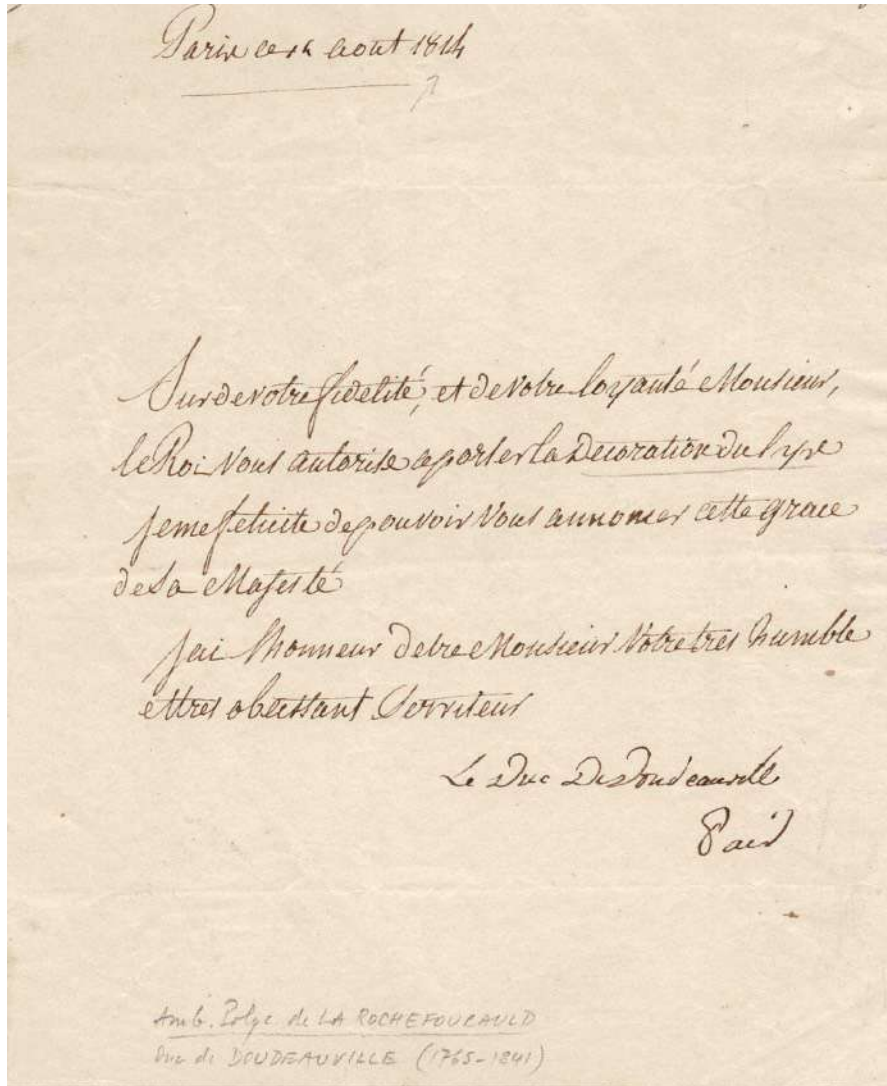 Paris ce aout 1814
Sur de votre fidelité, et de Votre loyauté Monsieur,
le Roi Vous autorise a porter la Decoration du lys
je me felicite de pouvoir Vous annoncer cette grace
de Sa Majesté
jai lhonneur detre Monsieur Votre tres humble
et tres obeissant Serviteur
Le Duc De Doudeauville
Pair
Amb. Polyc de LA ROCHEFOUCAULD
Duc de DOUDEAUVILLE (1765-1841)